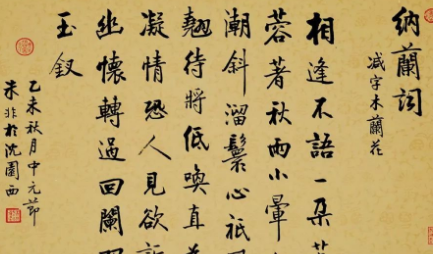 納蘭詞
減字木蘭花
相逢不語一朵
蓉著秋雨小暈
潮斜溜鬟心祇
翹待將低喚直
凝情恐人見欲訴
幽懷轉過回闌
玉釵
乙未秋月中元節
朱非於沈園西